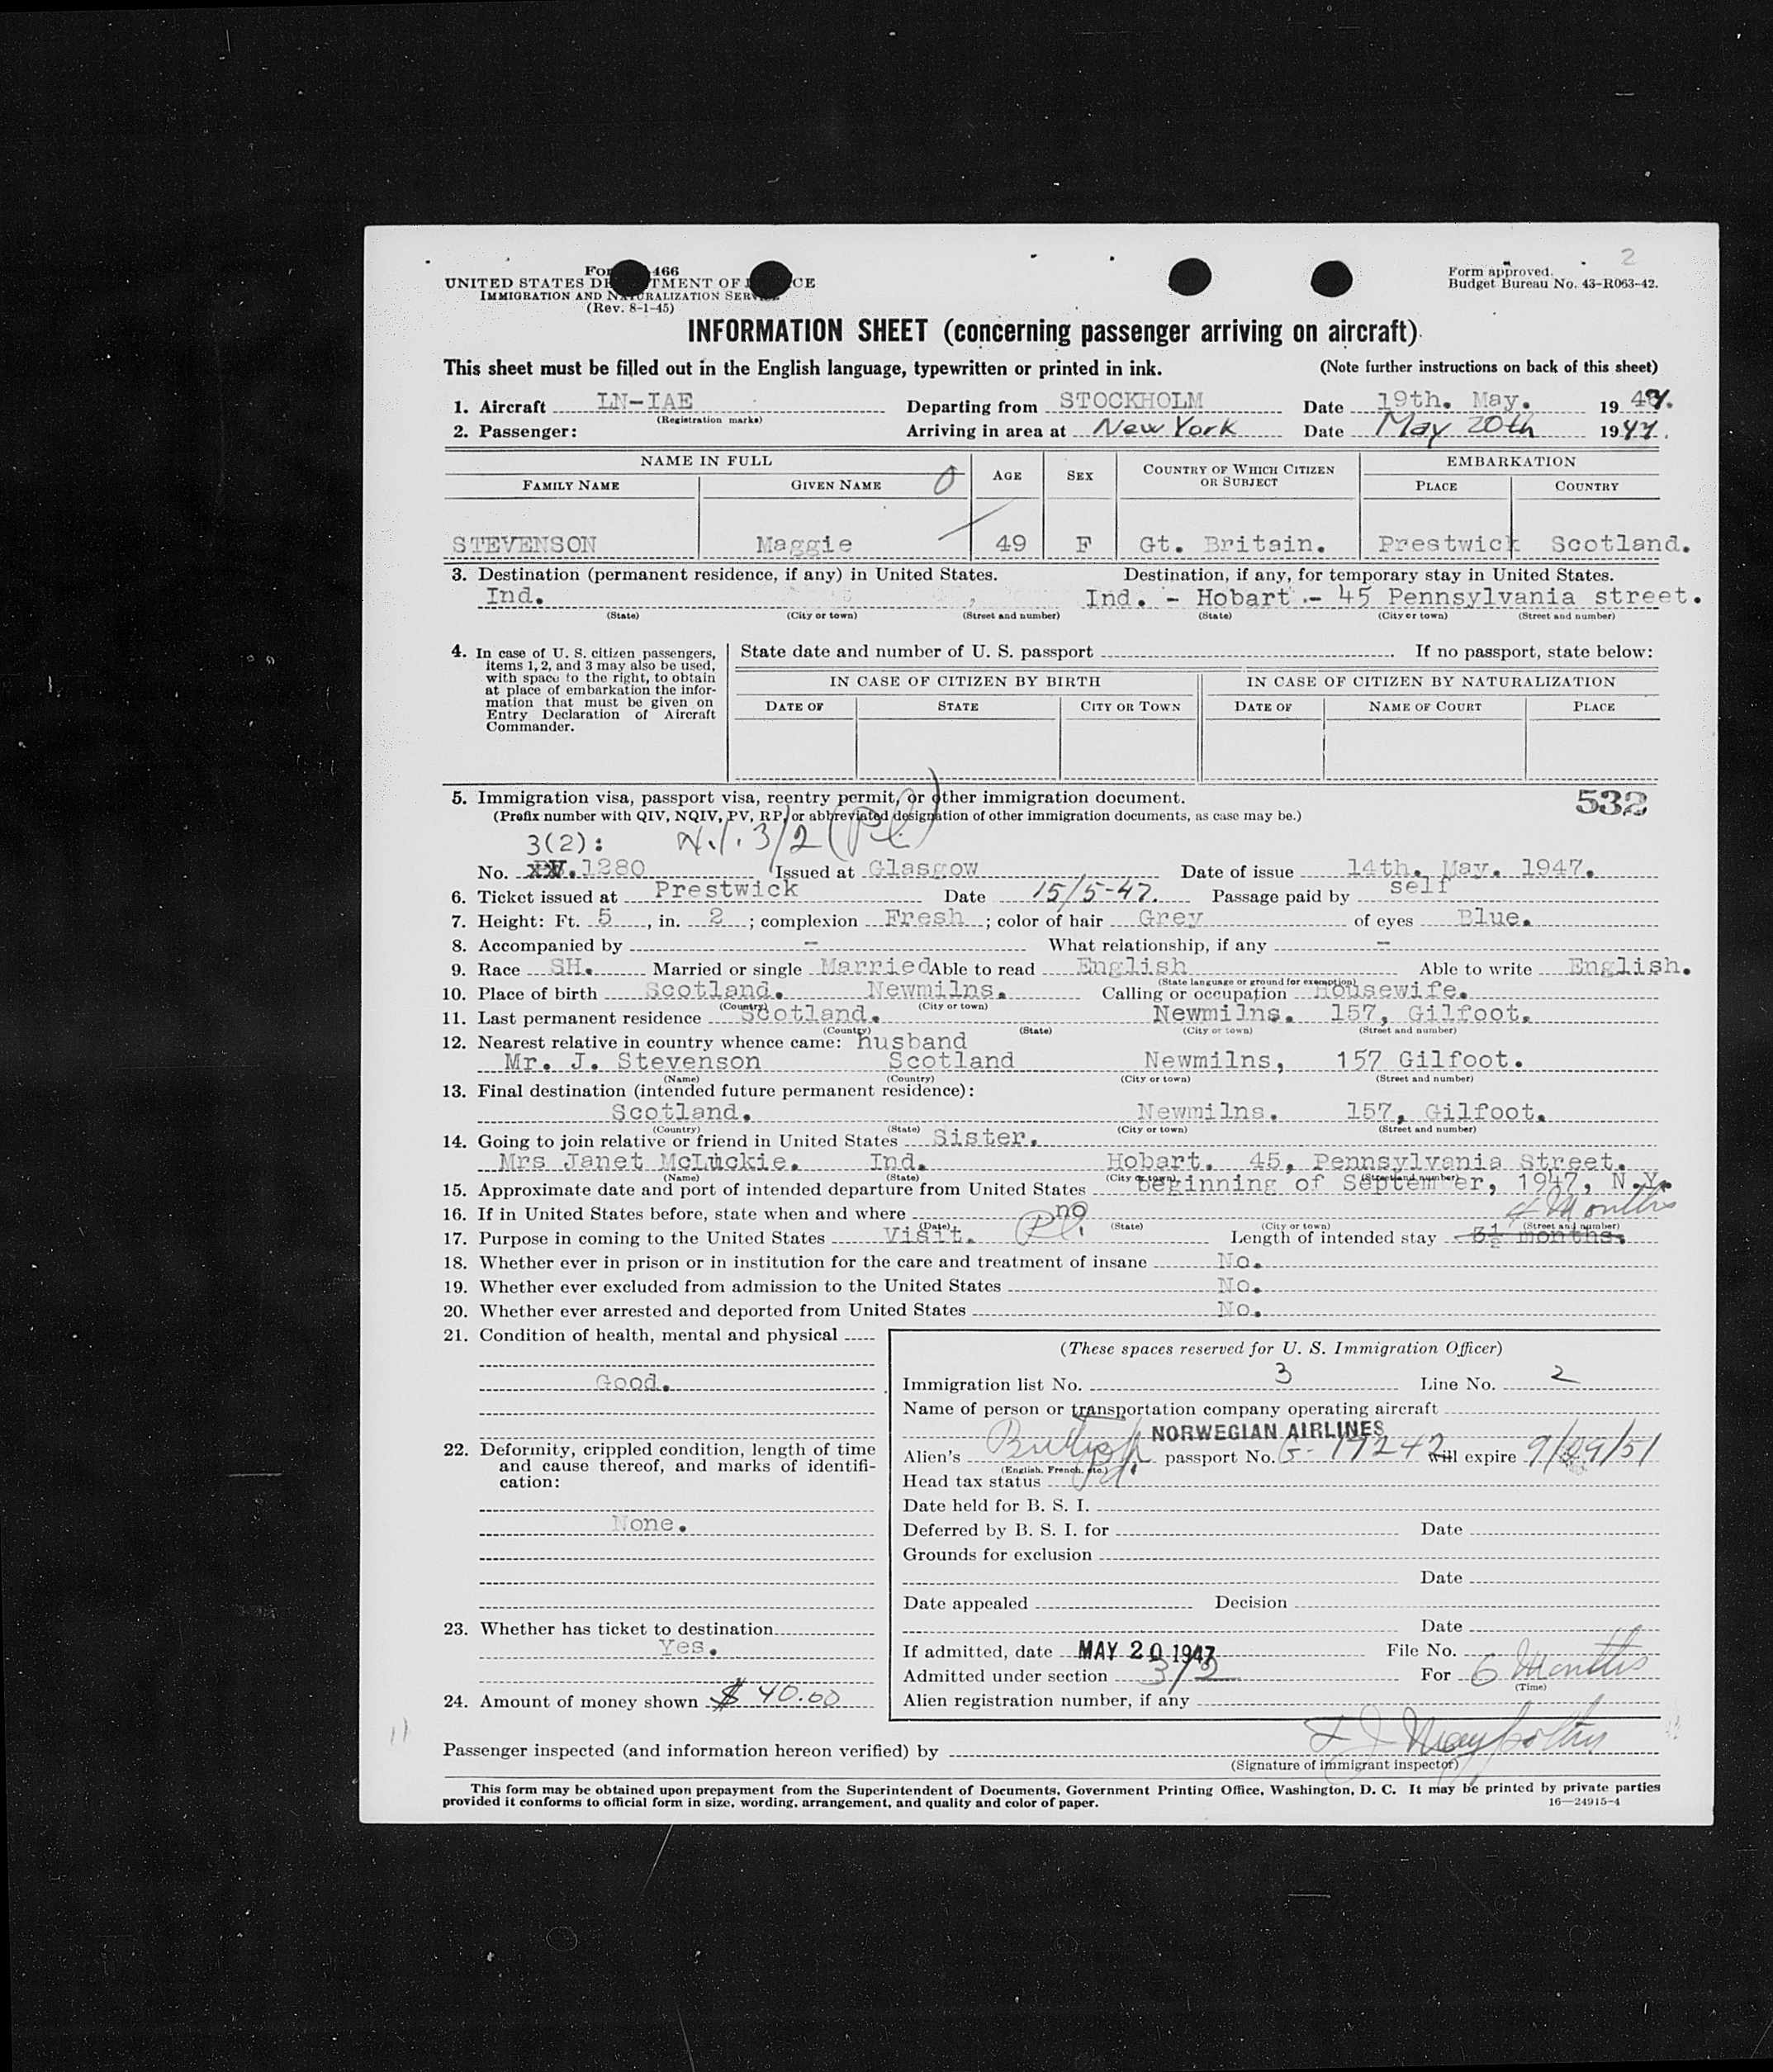 2
Form 466
UNITED STATES DEPARTMENT OF JUSTICE
IMMIGRATION AND NATURALIZATION SERVICE
(Rev. 8-1-45)
Form approved.
Budget Bureau No. 43-R063-42.
INFORMATION SHEET (concerning passenger arriving on aircraft)
This sheet must be filled out in the English language, typewritten or printed in ink. (Note further instructions on back of this sheet)
1. Aircraft LN-IAE Departing from STOCKHOLM Date 19th. May. 1947.
(Registration marks)
2. Passenger: Arriving in area at New York Date May 20th 1947.
NAME IN FULL AGE SEX COUNTRY OF WHICH CITIZEN OR SUBJECT EMBARKATION
FAMILY NAME GIVEN NAME PLACE COUNTRY
STEVENSON Maggie 49 F Gt. Britain. Prestwick Scotland.
3. Destination (permanent residence, if any) in United States. Destination, if any, for temporary stay in United States.
Ind. Ind. - Hobart - 45 Pennsylvania street.
(State) (City or town) (Street and number) (State) (City or town) (Street and number)
4. In case of U. S. citizen passengers, items 1, 2, and 3 may also be used, with space to the right, to obtain at place of embarkation the information that must be given on Entry Declaration of Aircraft Commander.
State date and number of U. S. passport If no passport, state below:
IN CASE OF CITIZEN BY BIRTH IN CASE OF CITIZEN BY NATURALIZATION
DATE OF STATE CITY OR TOWN DATE OF NAME OF COURT PLACE
5. Immigration visa, passport visa, reentry permit, or other immigration document. 532
(Prefix number with QIV, NQIV, PV, RP, or abbreviated designation of other immigration documents, as case may be.)
3(2): N.I. 3/2 (Pl)
No. 1280 Issued at Glasgow Date of issue 14th. May. 1947.
6. Ticket issued at Prestwick Date 15/5-47. Passage paid by self
7. Height: Ft. 5, in. 2; complexion Fresh; color of hair Grey of eyes Blue.
8. Accompanied by - What relationship, if any -
9. Race SH. Married or single Married Able to read English Able to write English.
(State language or ground for exemption)
10. Place of birth Scotland. Newmilns. Calling or occupation Housewife.
(Country) (City or town)
11. Last permanent residence Scotland. Newmilns. 157, Gilfoot.
(Country) (State) (City or town) (Street and number)
12. Nearest relative in country whence came: husband
Mr. J. Stevenson Scotland Newmilns, 157 Gilfoot.
(Name) (Country) (City or town) (Street and number)
13. Final destination (intended future permanent residence):
Scotland. Newmilns. 157, Gilfoot.
(Country) (State) (City or town) (Street and number)
14. Going to join relative or friend in United States Sister.
Mrs Janet McLuckie. Ind. Hobart. 45, Pennsylvania Street.
(Name) (State) (City or town) (Street and number)
15. Approximate date and port of intended departure from United States beginning of September, 1947, N.Y.
16. If in United States before, state when and where no 4 Months
(Date) (State) (City or town) (Street and number)
17. Purpose in coming to the United States Visit. Pl. Length of intended stay 3½ months.
18. Whether ever in prison or in institution for the care and treatment of insane No.
19. Whether ever excluded from admission to the United States No.
20. Whether ever arrested and deported from United States No.
21. Condition of health, mental and physical
Good.
22. Deformity, crippled condition, length of time and cause thereof, and marks of identification:
None.
23. Whether has ticket to destination
Yes.
24. Amount of money shown $ 40.00
(These spaces reserved for U. S. Immigration Officer)
Immigration list No. 3 Line No. 2
Name of person or transportation company operating aircraft
NORWEGIAN AIRLINES
Alien's British passport No. G-17242 will expire 9/29/51
(English, French, etc.)
Head tax status
Date held for B. S. I.
Deferred by B. S. I. for Date
Grounds for exclusion
Date
Date appealed Decision
Date
If admitted, date MAY 20 1947 File No.
Admitted under section 3/2 For 6 Months
(Time)
Alien registration number, if any
Passenger inspected (and information hereon verified) by
(Signature of immigrant inspector)
This form may be obtained upon prepayment from the Superintendent of Documents, Government Printing Office, Washington, D. C. It may be printed by private parties
provided it conforms to official form in size, wording, arrangement, and quality and color of paper. 16—24915-4